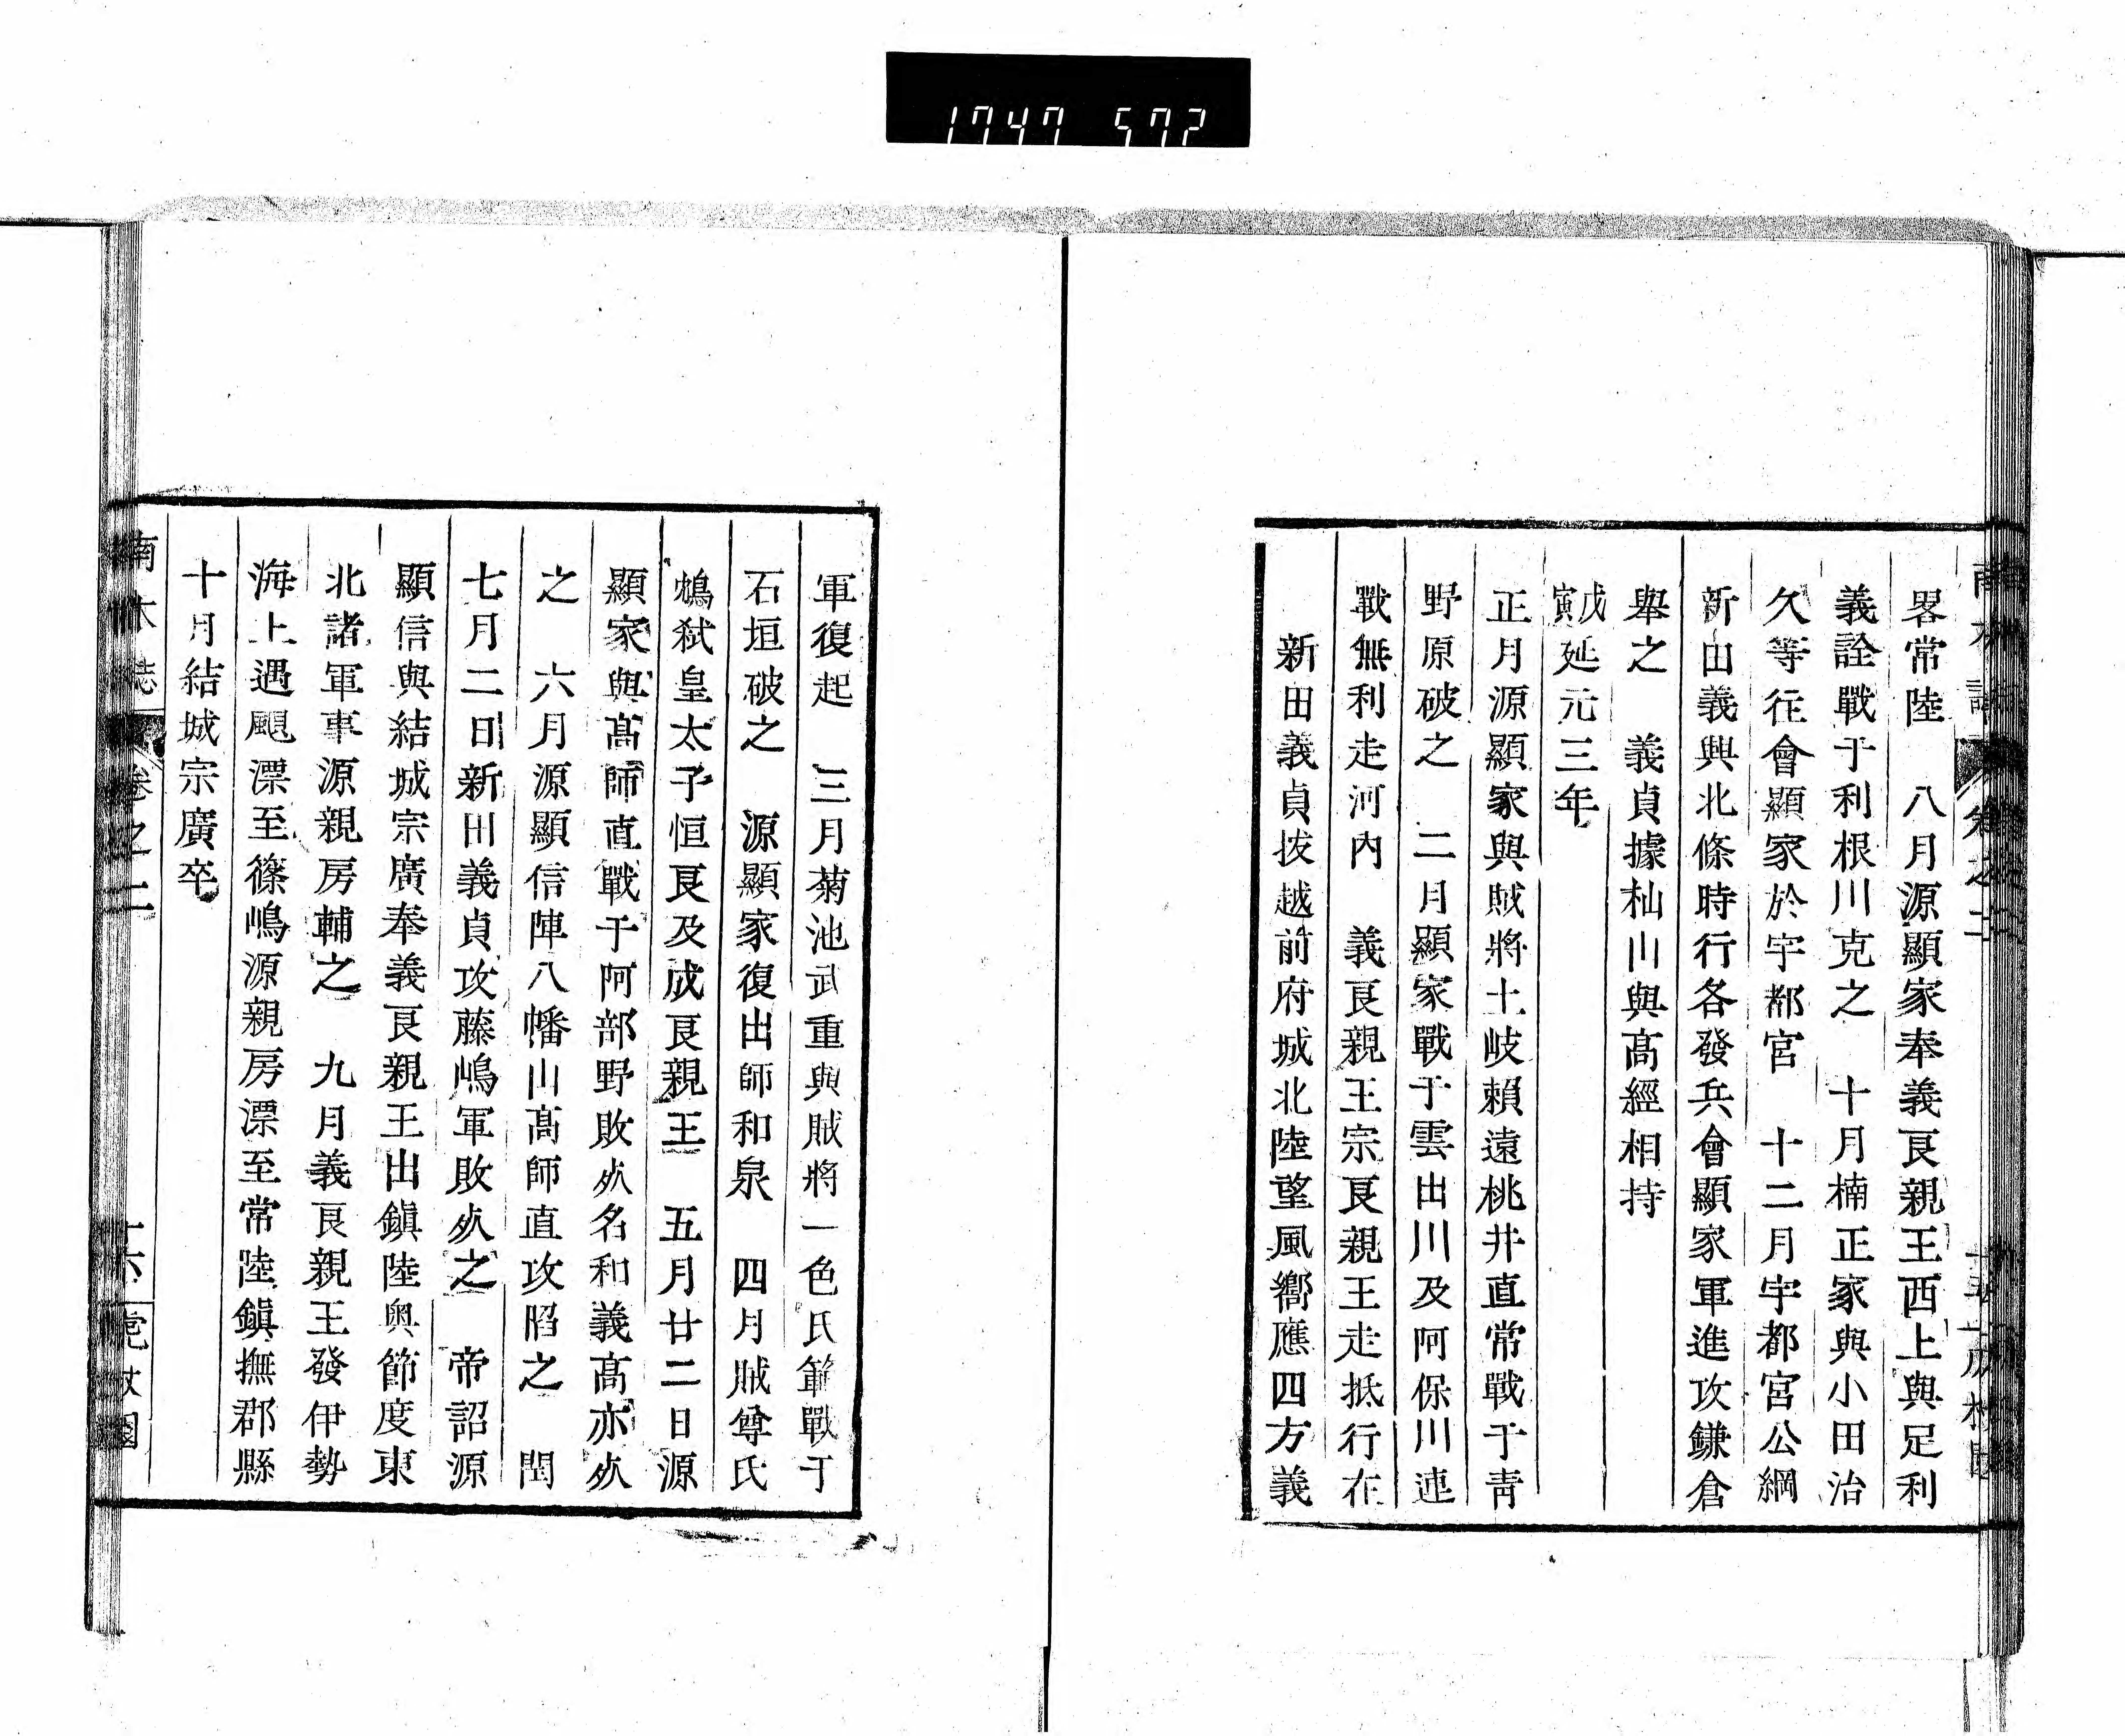 1747 572
畧常陸　八月源顯家奉義良親王西上與足利
義詮戰于利根川克之　十月楠正家與小田治
久等往會顯家於宇都宮　十二月宇都宮公綱
新田義興北條時行各發兵會顯家軍進攻鎌倉
舉之　義貞據杣川與高經相持
戊寅延元三年
正月源顯家與賊將土岐賴遠桃井直常戰于靑
野原破之　二月顯家戰于雲出川及阿保川連
戰無利走河內　義良親王宗良親王走抵行在
新田義貞拔越前府城北陸望風嚮應四方義
軍復起　三月菊池武重與賊將一色氏範戰于
石垣破之　源顯家復出師和泉　四月賊尊氏
鴆弑皇太子恒良及成良親王　五月廿二日源
顯家與高師直戰于阿部野敗死名和義高亦死
之　六月源顯信陣八幡山高師直攻陷之　閏
七月二日新田義貞攻藤嶋軍敗死之　帝詔源
顯信與結城宗廣奉義良親王出鎭陸奧節度東
北諸軍事源親房輔之　九月義良親王發伊勢
海上遇颶漂至篠嶋源親房漂至常陸鎭撫郡縣
十月結城宗廣卒
卷之二